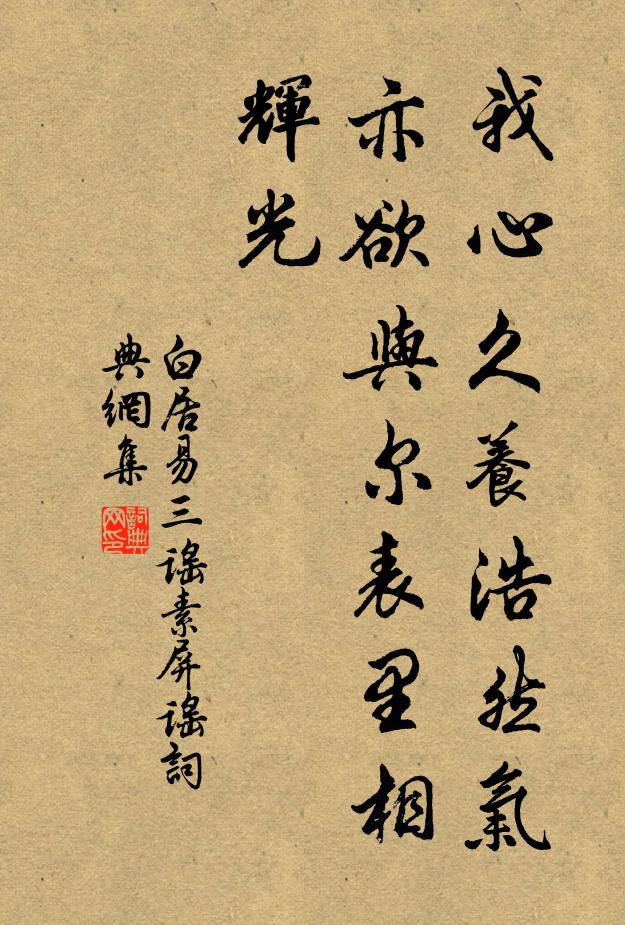 我心久養浩然氣
亦欲與尔表里相
輝光
白居易三謠素屏謠詞
典網集
詞典
网印